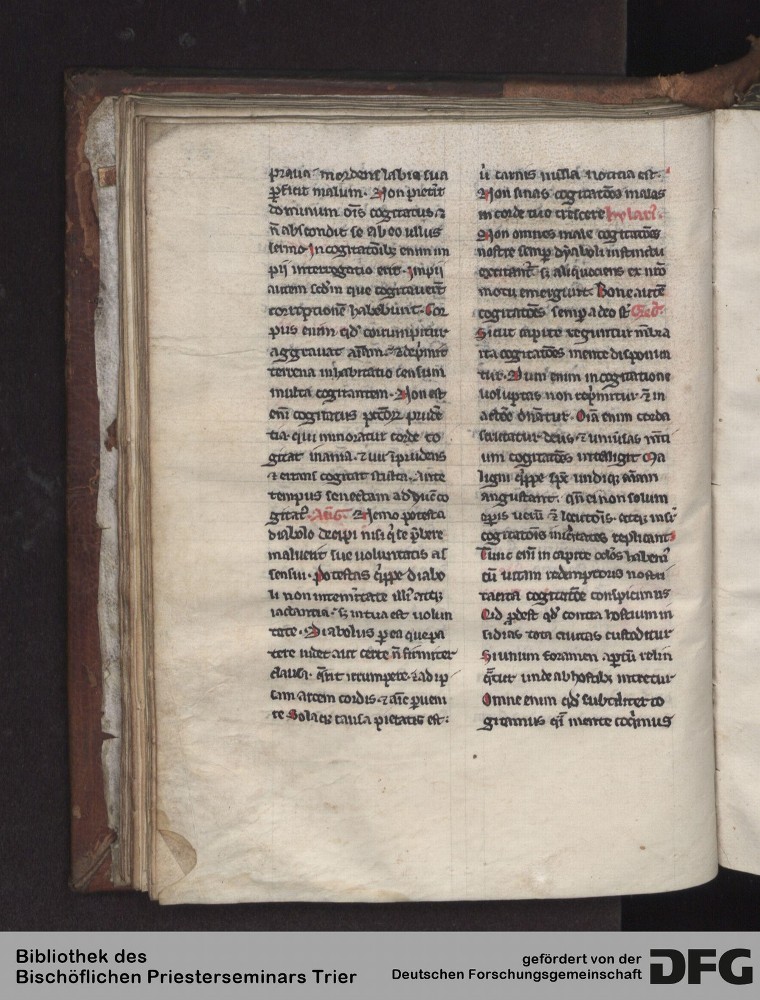 praua· mordens labia sua
ꝑficit malum. Non p̄terit
dominum oīs cogitatus ⁊
n̄ abscondit se ab eo ullus
sermo In cogitatōibꝫ enim im
pij interrogatio erit. Impij
autem scd̄m que cogitauer̄t
correptionē habebunt. Cor
pus enim qd̓ corrumpitur
aggrauat aīam. ⁊ dep̄mit
terrena inhabitatio sensum
multa cogitantem. Non est
em̄ cogitatus pctōrꝝ prudē
tia· qui minoratur corde co
gitat inania. ⁊ uir īprudens
⁊ errans cogitat stulta. Ante
tempus senectam adducē co
gitatꝰ. Aug̓. Nemo potest a
diabolo decipi nisi q̇ se p̄bere
maluerit sue uoluntatis as
sensū. Potestas q̇ppe diabo
li non in temeritate illiꝰ atqꝫ
iactantia. sꝫ in tua est uolun
tate. Diabolus ꝑ ea que pa
tere uidet aut certe n̄ firmiter
clausa. q̄rit irrumpere. ⁊ ad ip̄
sam arcem cordis. ⁊ aīe ꝑueni
re Sola cui causa pietatis est.
ū carnis nulla noticia est.
Non sinas cogitatōes malas
in corde tuo crescere hylariꝰ.
Non omnes male cogitatōes
nostre semꝑ dyaboli instinctu
excitant̄. sꝫ aliquociens ex nr̄o
motu emergunt. Bone autē
cogitatōes semꝑ a deo st̄. Greg̓.
Sicut capite reguntur mēbra
ita cogitatōes mente disponun
tur. Dum enim in cogitatione
uoluptas non rep̄mitur. ⁊ in
actōe dn̄atur. Oīa enim corda
scrutatur deus. ⁊ uniūsas mēti
um cogitatōes intelligit Ma
ligni q̇ppe sp̄c undiqꝫ aīam
angustant. qn̄ ei non solum
oꝑis uerū ⁊ locutōis. atqꝫ insuꝑ
cogitatōis iniq̇tates replicant
Tunc em̄ in capite oc̄los habemꝰ
cū uitam redemptoris nostri
tacita cogitatōe conspicimus
Qd̓ ꝓdest qd̓ contra hostium in
sidias tota ciuitas custoditur
Si unum foramen aꝑtū relin
q̄tur unde ab hostibꝫ intretur
Omne enim qd̓ subtiliter co
gitamus q̄i mente coq̇mus
Bibliothek des
Bischöflichen Priesterseminars Trier
gefördert von der
Deutschen Forschungsgemeinschaft
DFG